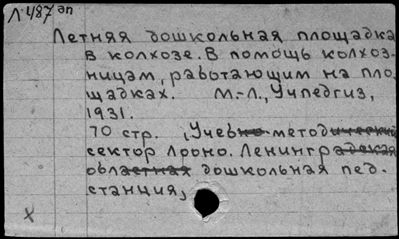 Л 487 эп
Летняя дошкольная площадка
в колхозе. В помощь колхоз-
ницам, работающим на пло-
щадках. М.-Л., Учпедгиз,
1931.
70 стр. (Учебно-методический
сектор Лроно. Ленинградская
областная дошкольная пед.
станция)
X